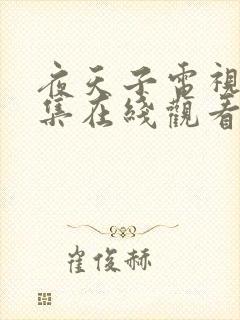 夜天子電視
集在綫觀看
崔俊赫